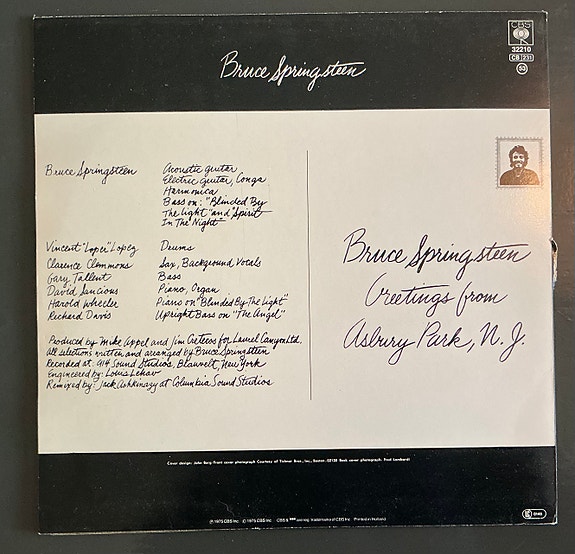 CBS
32210
CB 231
53
Bruce Springsteen
Bruce Springsteen Acoustic guitar
Electric guitar, Conga
Harmonica
Bass on: "Blinded By
The Light" and "Spirit
In The Night"
Vincent "Loper" Lopez Drums
Clarence Clemmons Sax, Background Vocals
Gary Tallent Bass
David Sancious Piano, Organ
Harold Wheeler Piano on "Blinded By The Light"
Richard Davis Upright Bass on "The Angel"
Produced by Mike Appel and Jim Cretecos for Laurel Canyon Ltd.
All selections written and arranged by Bruce Springsteen
Recorded at: 914 Sound Studios, Blauvelt, New York
Engineered by: Louis Lahav
Remixed by: Jack Ashkinazy at Columbia Sound Studios
Bruce Springsteen
Greetings from
Asbury Park, N.J.
Cover design: John Berg Front cover photograph Courtesy of Tichnor Bros., Inc., Boston, 02128 Back cover photograph: Fred Lombardi
℗ 1973 CBS Inc. © 1973 CBS Inc. CBS & are reg. trademarks of CBS Inc. Printed in Holland